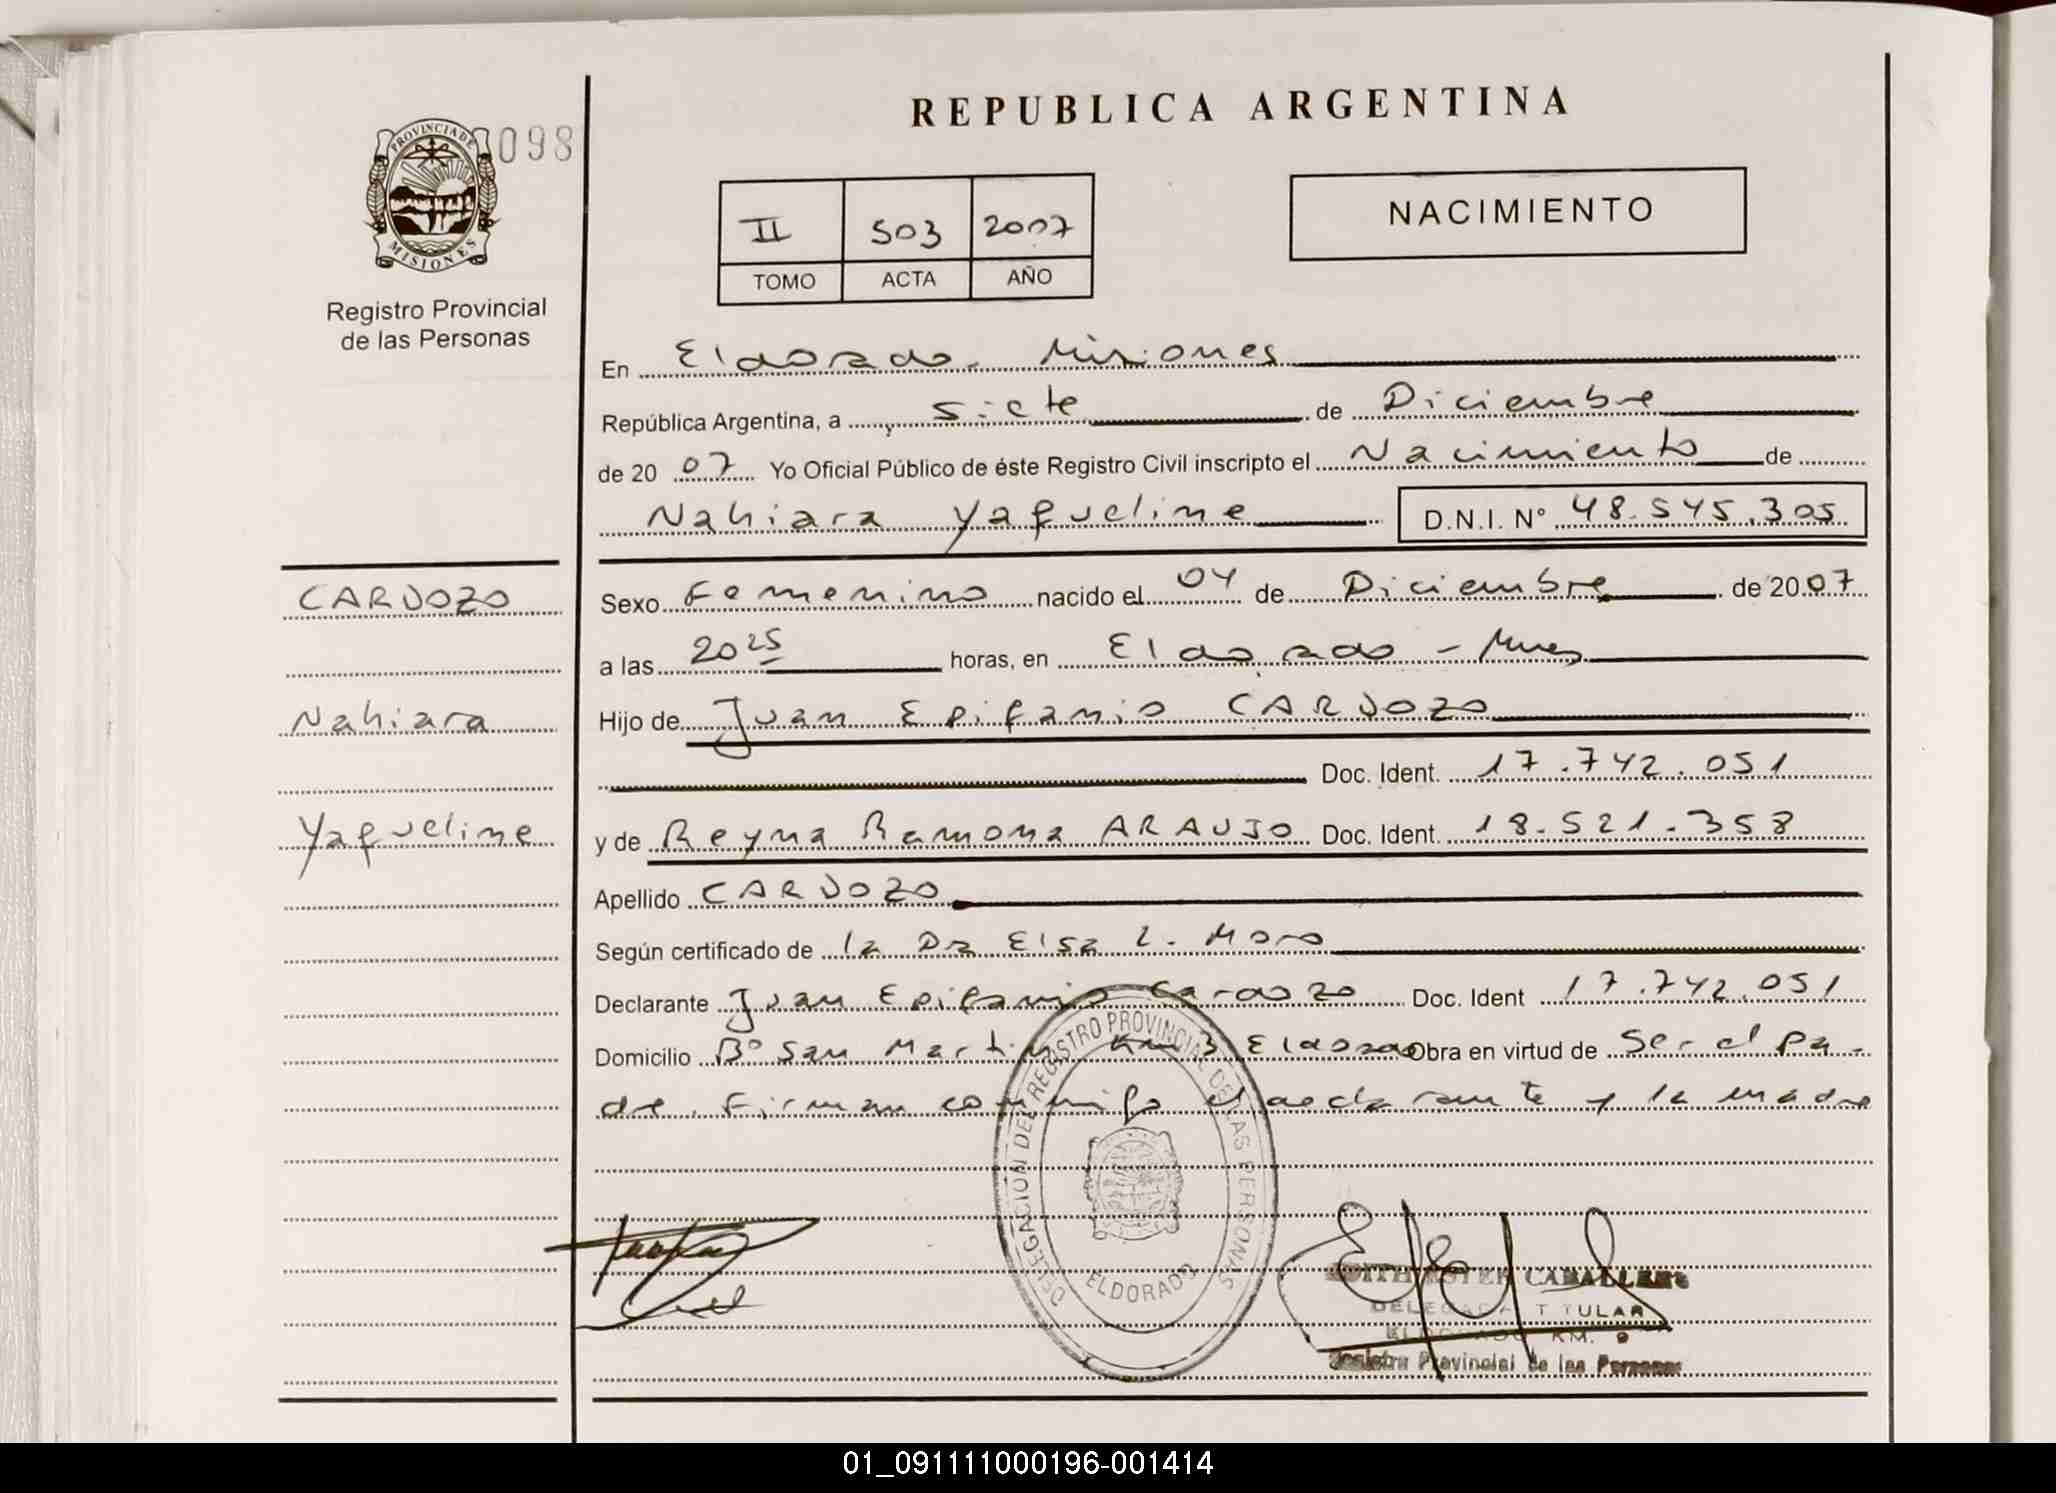 REPUBLICA ARGENTINA
PROVINCIA DE
MISIONES
098
Registro Provincial
de las Personas
II 503 2007
TOMO ACTA AÑO
NACIMIENTO
En Eldorado. Misiones
República Argentina, a siete de Diciembre
de 2007 Yo Oficial Público de éste Registro Civil inscripto el Nacimiento de
Nahiara Yaqueline D.N.I. Nº 48.545.305
CARDOZO
Nahiara
Yaqueline
Sexo Femenino nacido el 04 de Diciembre de 2007
a las 20 25 horas, en Eldorado - Mnes
Hijo de Juan Epifanio CARDOZO
Doc. Ident. 17.742.051
y de Reyna Ramona ARAUJO Doc. Ident. 18.521.358
Apellido CARDOZO
Según certificado de la Dra Elsa L. Moro
Declarante Juan Epifanio Cardozo Doc. Ident 17.742.051
Domicilio Bº San Martin Km 3 Eldorado Obra en virtud de Ser el pa-
dre. Firman conmigo el declarante y la madre
DELEGACIÓN DEL REGISTRO PROVINCIAL DE LAS PERSONAS
ELDORADO
EDITH ESTER CABALLERO
DELEGADA TITULAR
ELDORADO KM. 9
Registro Provincial de las Personas
01_091111000196-001414